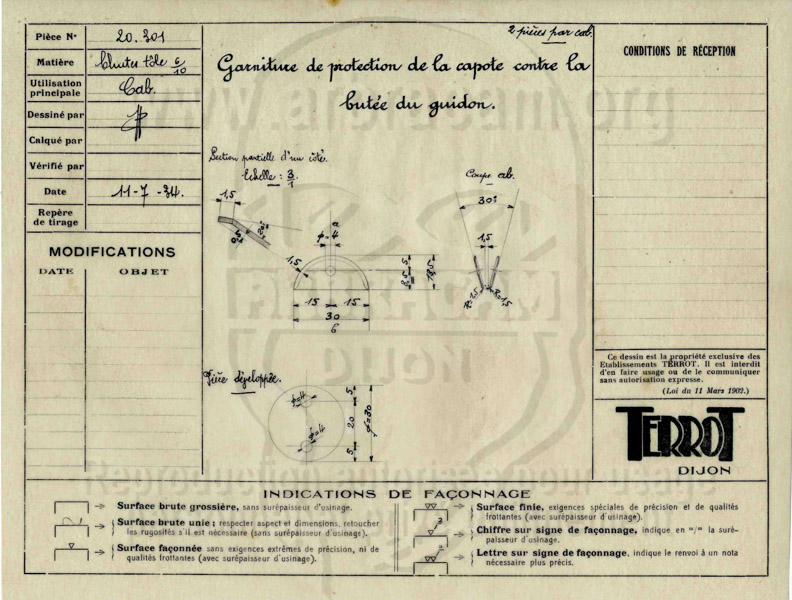 2 pièces par cab.
Pièce N° 20.301
Matière Chutes tôle 6/10
Utilisation principale Cab.
Dessiné par
Calqué par
Vérifié par
Date 11-7-34.
Repère de tirage
MODIFICATIONS
DATE OBJET
Garniture de protection de la capote contre la
butée du guidon.
CONDITIONS DE RÉCEPTION
Section partielle d'un côté.
Echelle : 3/1
1,5
Coupe ab.
30°
1,5
R=1,5
R=1,5
a
φ=4
1,5
5
18,5
15 15
30
b
Pièce développée.
φ=4
φ=4
5
20
5
φ=30
Ce dessin est la propriété exclusive des
Etablissements TERROT. Il est interdit
d'en faire usage ou de le communiquer
sans autorisation expresse.
(Loi du 11 Mars 1902.)
TERROT
DIJON
INDICATIONS DE FAÇONNAGE
Surface brute grossière, sans surépaisseur d'usinage.
Surface brute unie ; respecter aspect et dimensions, retoucher
les rugosités s'il est nécessaire (sans surépaisseur d'usinage).
Surface façonnée sans exigences extrêmes de précision, ni de
qualités frottantes (avec surépaisseur d'usinage).
Surface finie, exigences spéciales de précision et de qualités
frottantes (avec surépaisseur d'usinage).
3
Chiffre sur signe de façonnage, indique en "/" la suré-
paisseur d'usinage.
a
Lettre sur signe de façonnage, indique le renvoi à un nota
nécessaire plus précis.